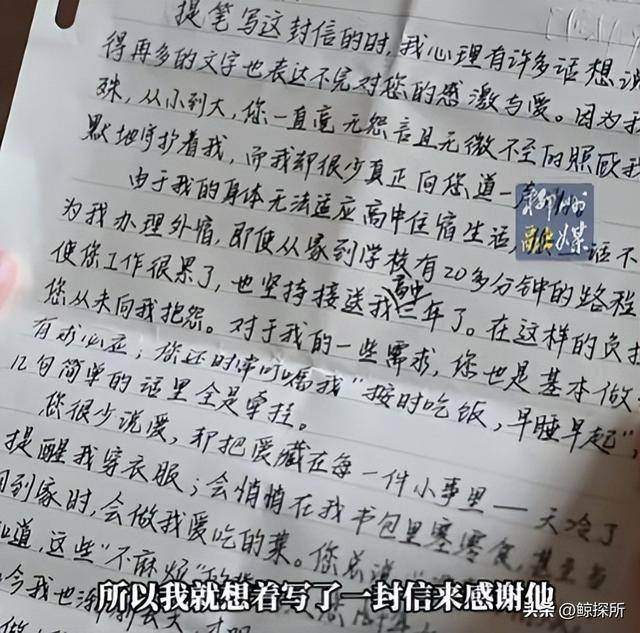 提笔写这封信的时,我心理有许多话想说
得再多的文字也表达不完对您的感激与爱。因为我
殊,从小到大,您一直毫无怨言且无微不至的照顾我
默地守护着我,而我却很少真正向您道一
由于我的身体无法适应高中住宿生活,话不
为我办理外宿,即使从家到学校有20多分钟的路程
使您工作很累了,也坚持接送我高中三年了。在这样的负担
您从未向我抱怨。对于我的一些需求,您也是基本做
有求必应;您还时常叮嘱我“按时吃饭,早睡早起”,
几句简单的话里全是牵挂。
您很少说爱,却把爱藏在每一件小事里——天冷了
提醒我穿衣服;会悄悄在我书包里塞零食,甚至
回到家时,会做我爱吃的菜。您总说
知道,这些“不麻烦”的
今我也渐渐长大,才明
郴州
融媒
所以我就想着写了一封信来感谢他
头条 @鲸探所